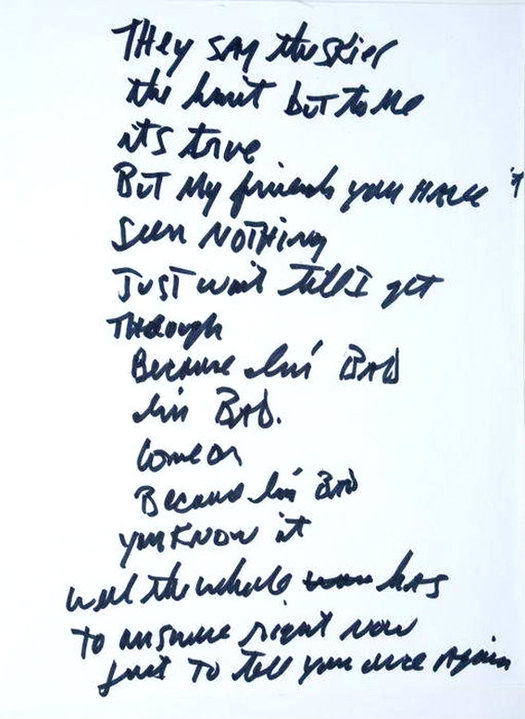 THEy SAy the skies
the limit but to Me
its true
BuT My friends you HAVE 't
Seen NOTHing
JUST wait till I get
THRough
Because im' BAD
im BAD.
Come on
Because im' BAD
you KNOW it
well the whole has
To answer right NOW
Just To tell you once Again